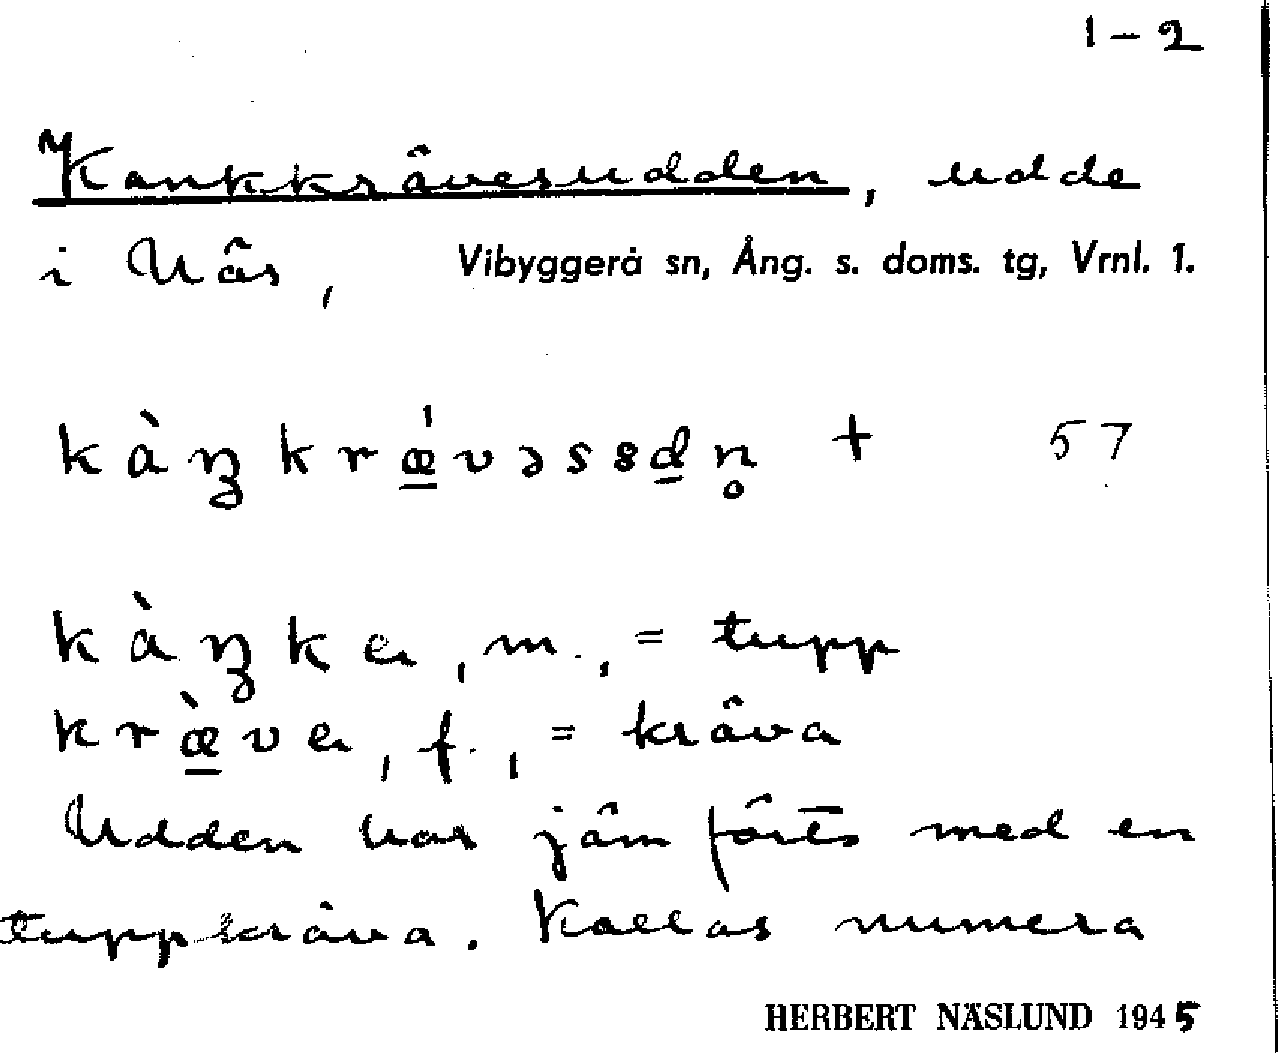 1-2
Kankkrävesudden, udde
i Näs, Vibyggerå sn, Ång. s. doms. tg, Vrnl. 1.
+ 57
, m., = tupp
, f., = kräva
Udden har jämförts med en
tuppkräva. Kallas numera
HERBERT NÄSLUND 1945